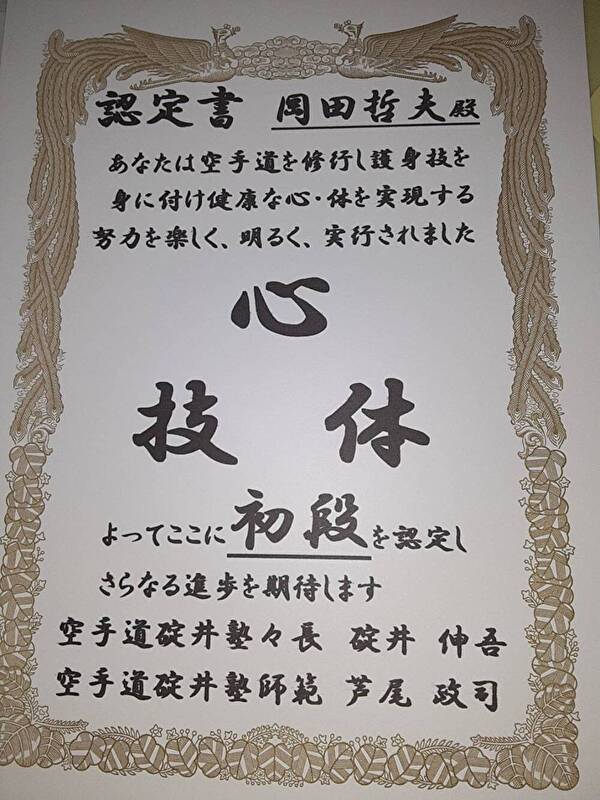 認定書 岡田哲夫殿
あなたは空手道を修行し護身技を
身に付け健康な心・体を実現する
努力を楽しく、明るく、実行されました
心
技 体
よってここに初段を認定し
さらなる進歩を期待します
空手道碇井塾々長 碇井 伸吾
空手道碇井塾師範 芦尾 政司